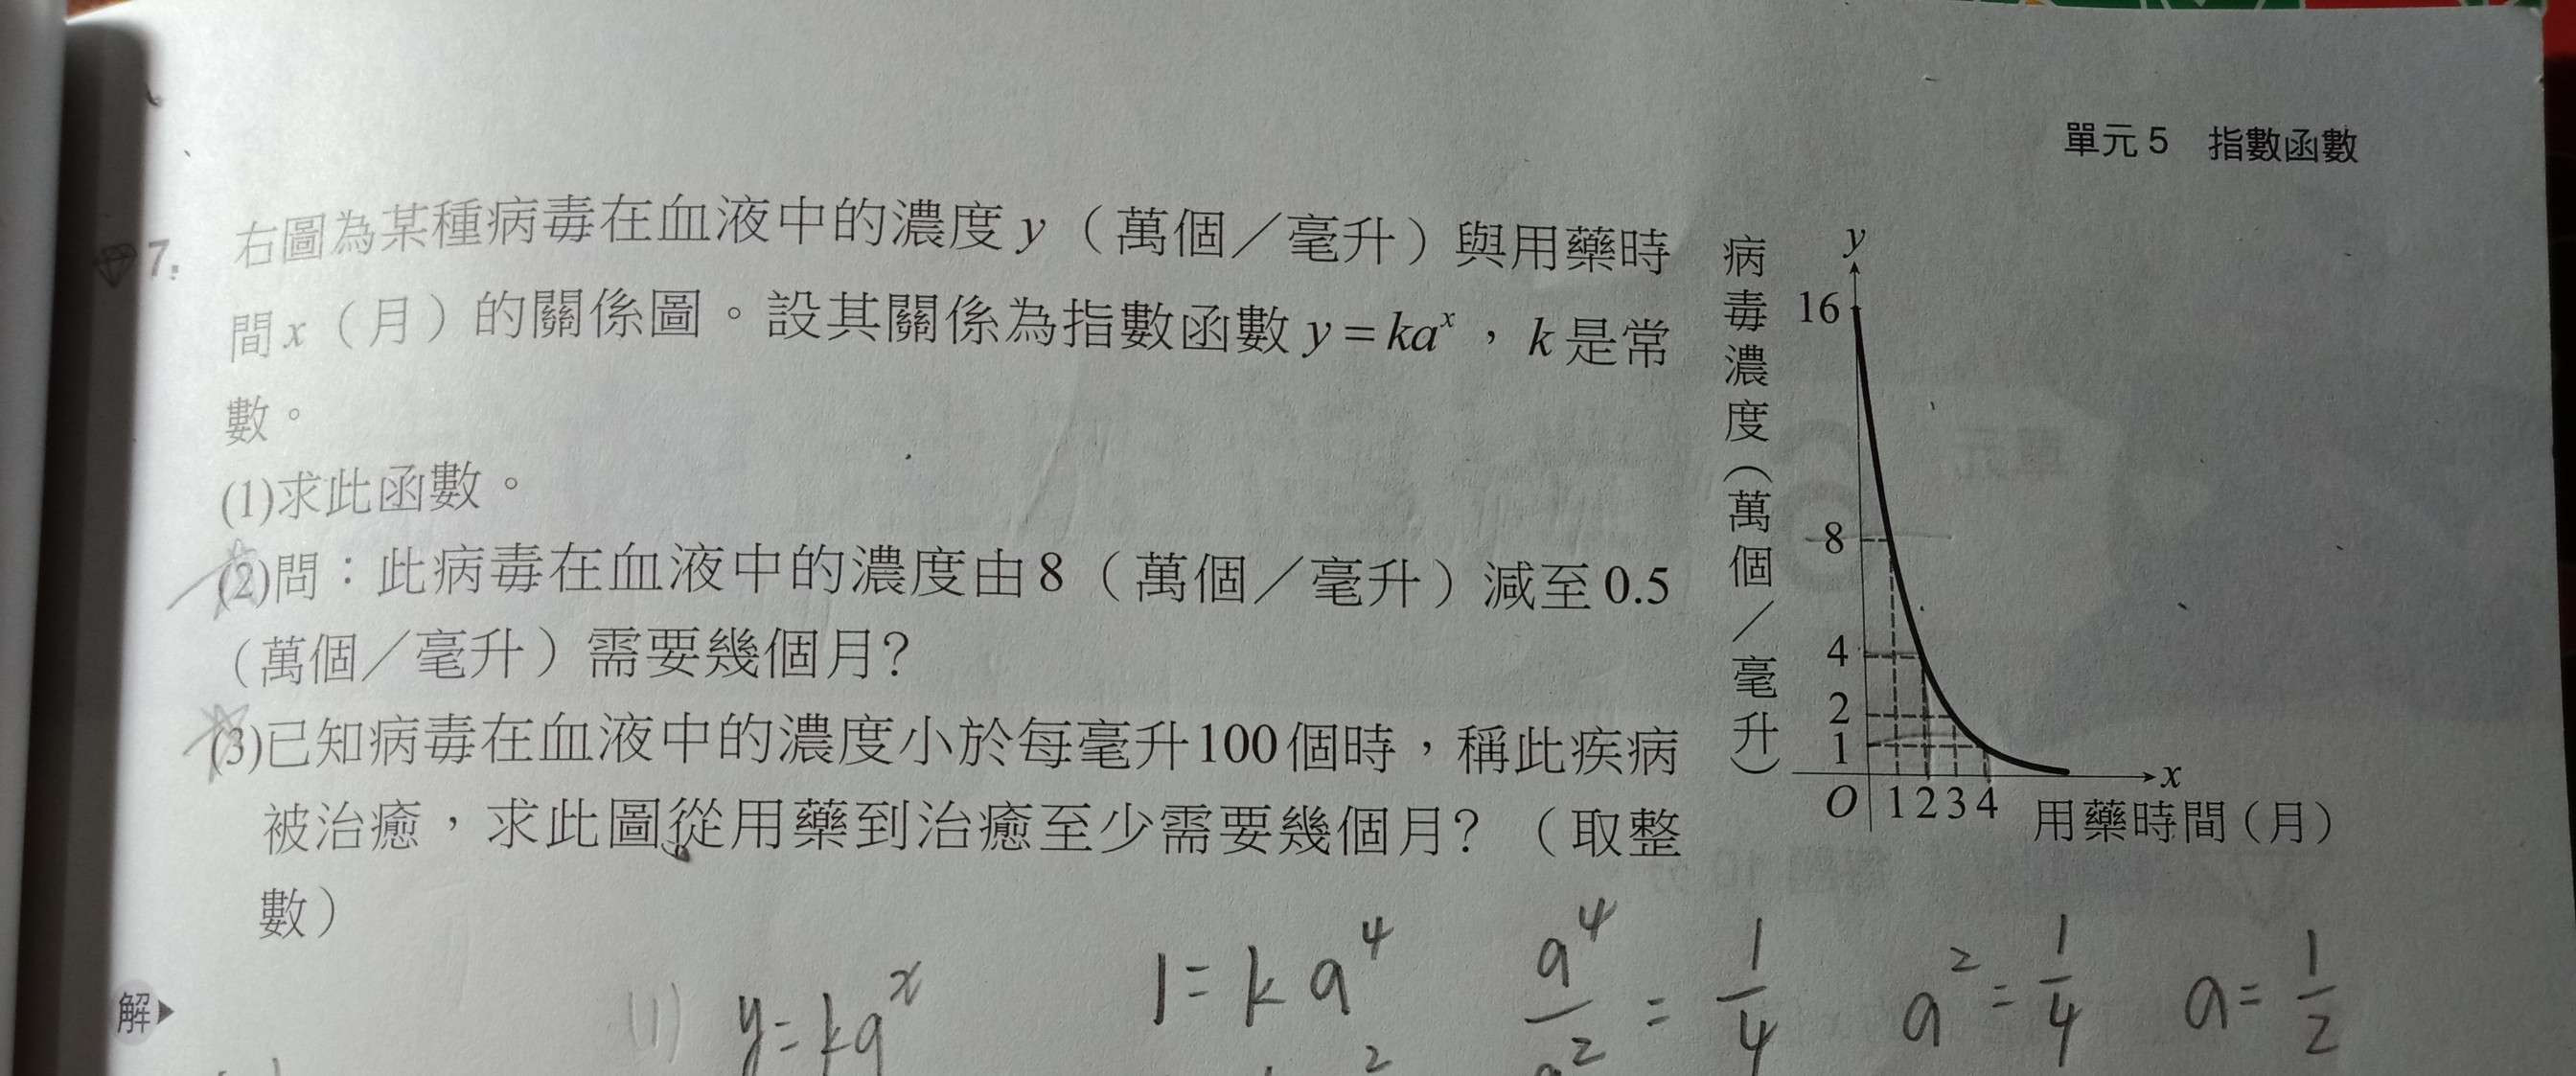 單元5 指數函數
7. 右圖為某種病毒在血液中的濃度y（萬個／毫升）與用藥時
間x（月）的關係圖。設其關係為指數函數y=kaˣ，k是常
數。
(1)求此函數。
(2)問：此病毒在血液中的濃度由8（萬個／毫升）減至0.5
（萬個／毫升）需要幾個月？
(3)已知病毒在血液中的濃度小於每毫升100個時，稱此疾病
被治癒，求此圖從用藥到治癒至少需要幾個月？（取整
數）
病毒濃度（萬個／毫升）
y
16
8
4
2
1
x
O 1 2 3 4
用藥時間（月）
解▶
(1) y=kaˣ
1=ka⁴
a⁴/a²=1/4
a²=1/4
a=1/2